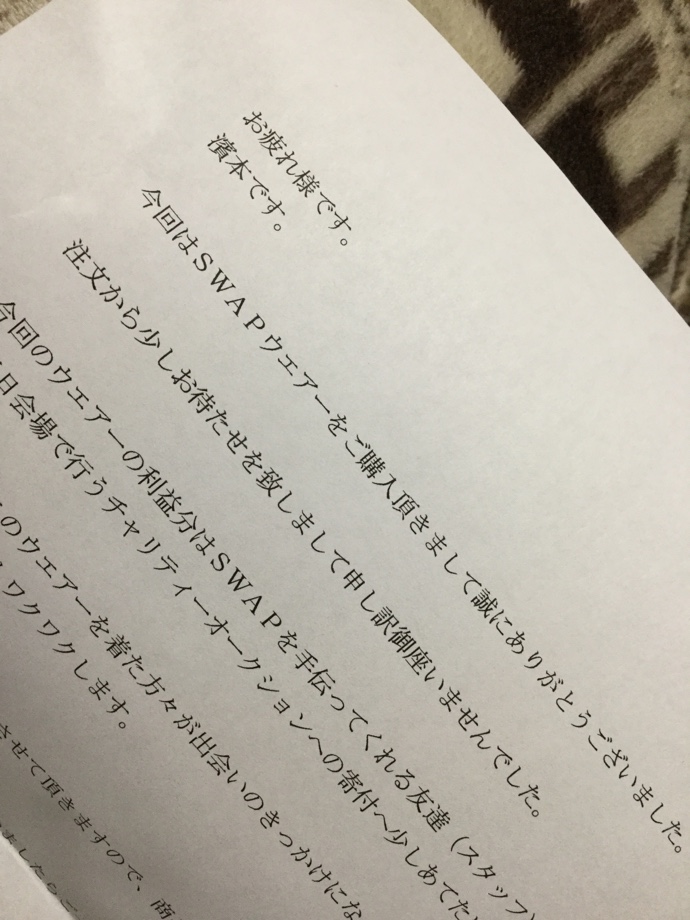 お疲れ様です。
濱本です。
今回はＳＷＡＰウエアーをご購入頂きまして誠にありがとうございました。
注文から少しお待たせを致しまして申し訳御座いませんでした。
今回のウエアーの利益分はＳＷＡＰを手伝ってくれる友達（スタッフ）
日会場で行うチャリティーオークションへの寄付へ少しあてた
のウエアーを着た方々が出会いのきっかけにな
ワクワクします。
させて頂きますので、商
ましたら